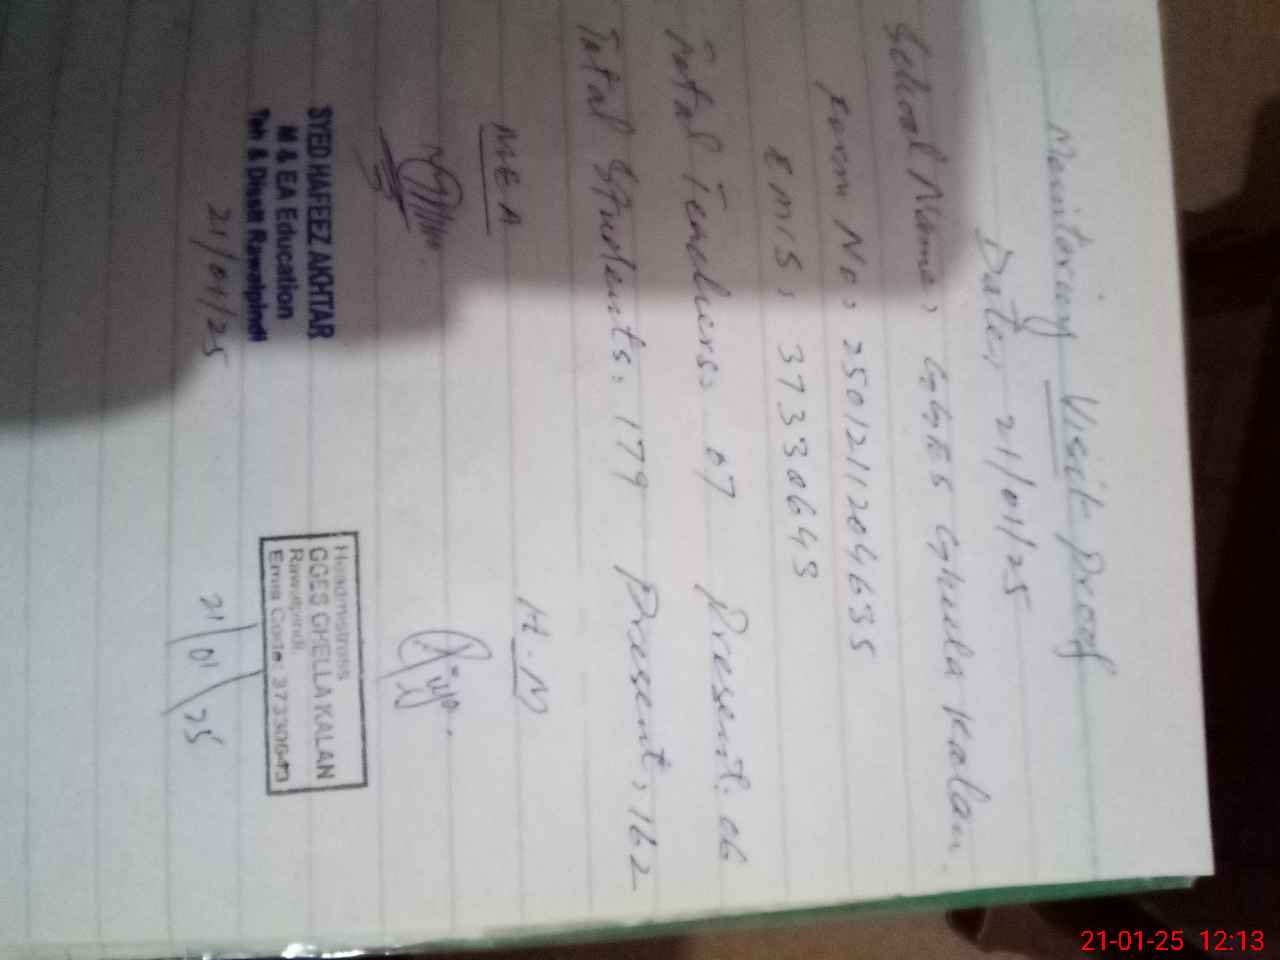 Monitoring Visit Proof
Date, 21/01/25
School Name, GGES Ghela Kalan.
Form No, 2501211204635
EMIS, 37330643
Total Teachers, 07 Present. 06
Total Students, 179 Present, 162
MEA H.M
SYED HAFEEZ AKHTAR
M & EA Education
Teh & Distt Rawalpindi
21/01/25
Headmistress
GGES CHELLA KALAN
Rawalpindi.
Emis Code: 37330643
21/01/25
21-01-25 12:13